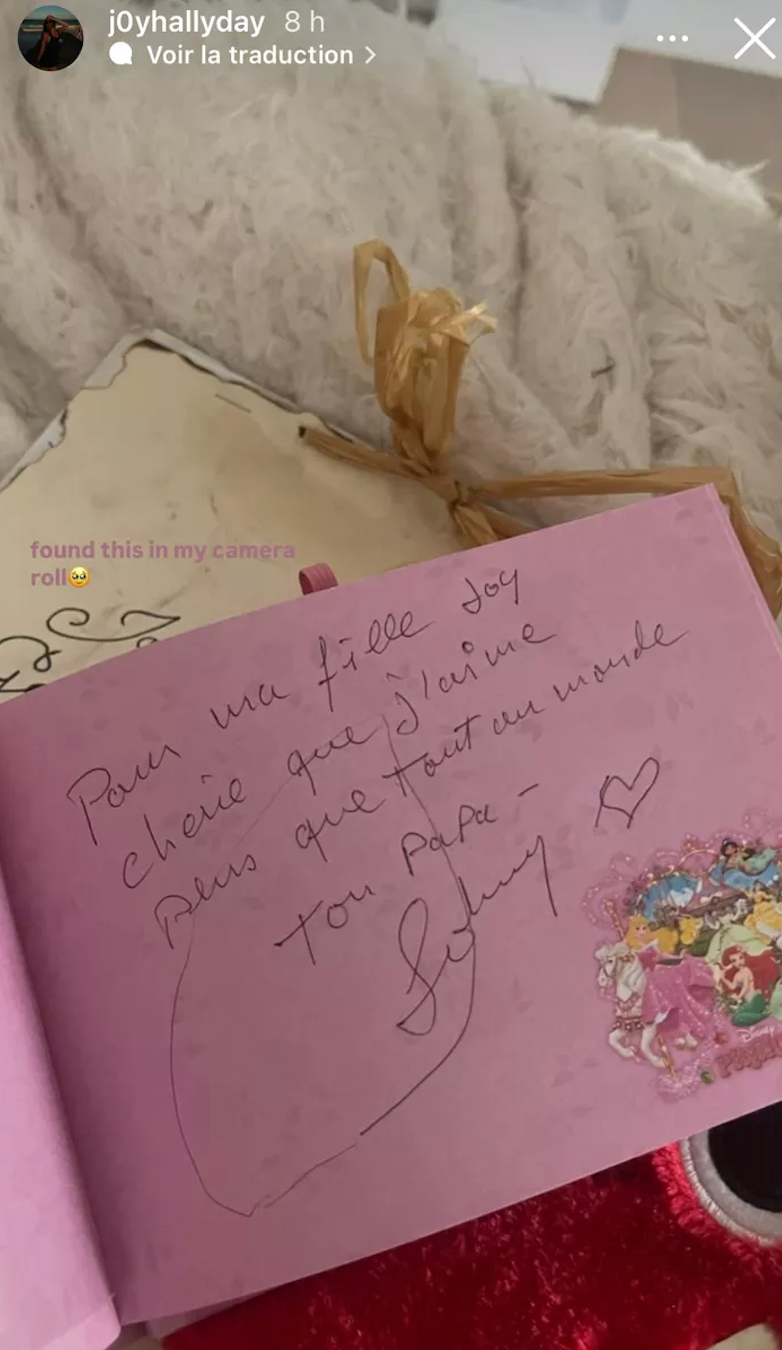 j0yhallyday 8 h
Voir la traduction >
found this in my camera
roll🥹
Pour ma fille Joy
cherie que j'aime
plus que tout au monde
ton Papa -
Johnny
Disney